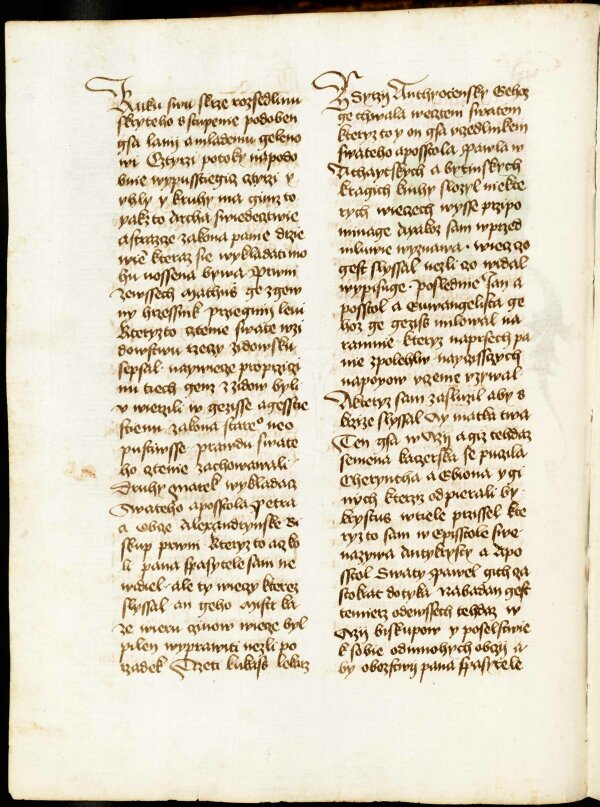 Ruku swu skrze rozsedlinu
skryteho a stupenie podoben
gsa lanij a mlademu geleno
wi Cztyrzi potoky napodo
bnie wypusstiegicz cztyrzi y
vhly y kruhy ma gimz to
yakzto Archa swiedecztwie
a strazze zakona panie drzie
wie kteraz sie wykladatimo
hu nossena bywa Prwni
zewssech Mathus ge zgew
ny hrzessnik Przigmi leui
kteryzto cztenie swate wzi
dowstwu rzeczy zidowsku
sepsal naywiecze pro przigi
nu tiech genz z zidow byli
v wierzili w gezisse a gessctie
sctienu zakona stareo neo
pustiwsse prawdu swate
ho cztenie zachowawali
Druhy Marek wykladacz
Swateho apposstola Petra
a Obcze Alexandrynske Bi
skup prwni kteryzto acz ko
li pana spasytele sam ne
widiel ale ty wieczy kterez
slyssal an geho Mistr ka
ze wieru czinow wiecze byl
pilen wyprawiti nezli po
rzadek Trzeti lukass lekarz
Syrzij Anthyocensky Gehoz
ge chwala weczteni swatem
kteryz to y on gsa vczedlnikem
swateho apposstola pawla w
Achaytskych a bytinskych
kragich knihy slozyl niekte
rych wieczech wysse przipo
minage A yakoz sam wprzed
mluwie wyznawa wiecz czo
gest slyssal nezli czo widal
wypisuge Poslednie Jan a
posstol a Ewangelista ge
hoz ge gezis milowal na
ramnie kteryz na prsech pa
nie zpolehlw nayczisstych
napogow vczenie vzywal
A kteryz sam zasluzil aby s
krzize slyssal Ay matka twa
Ten gsa w Azij a giz tehdaz
semena kaczerska se pucila
Cheryntha a Ebiona y gi
nych kterzi odpierali by
krystus wtiele przissel kte
ryz to sam w Episstole swe
nazywa Antykrysty a Apo
sstol Swaty Pawel gich cza
stokrat dotyka nabadan gest
temierz odewssech tehdaz w
Azij biskupow y poselstwie
k sobie od mnohych obczij a
by obozstwij pana spasytele